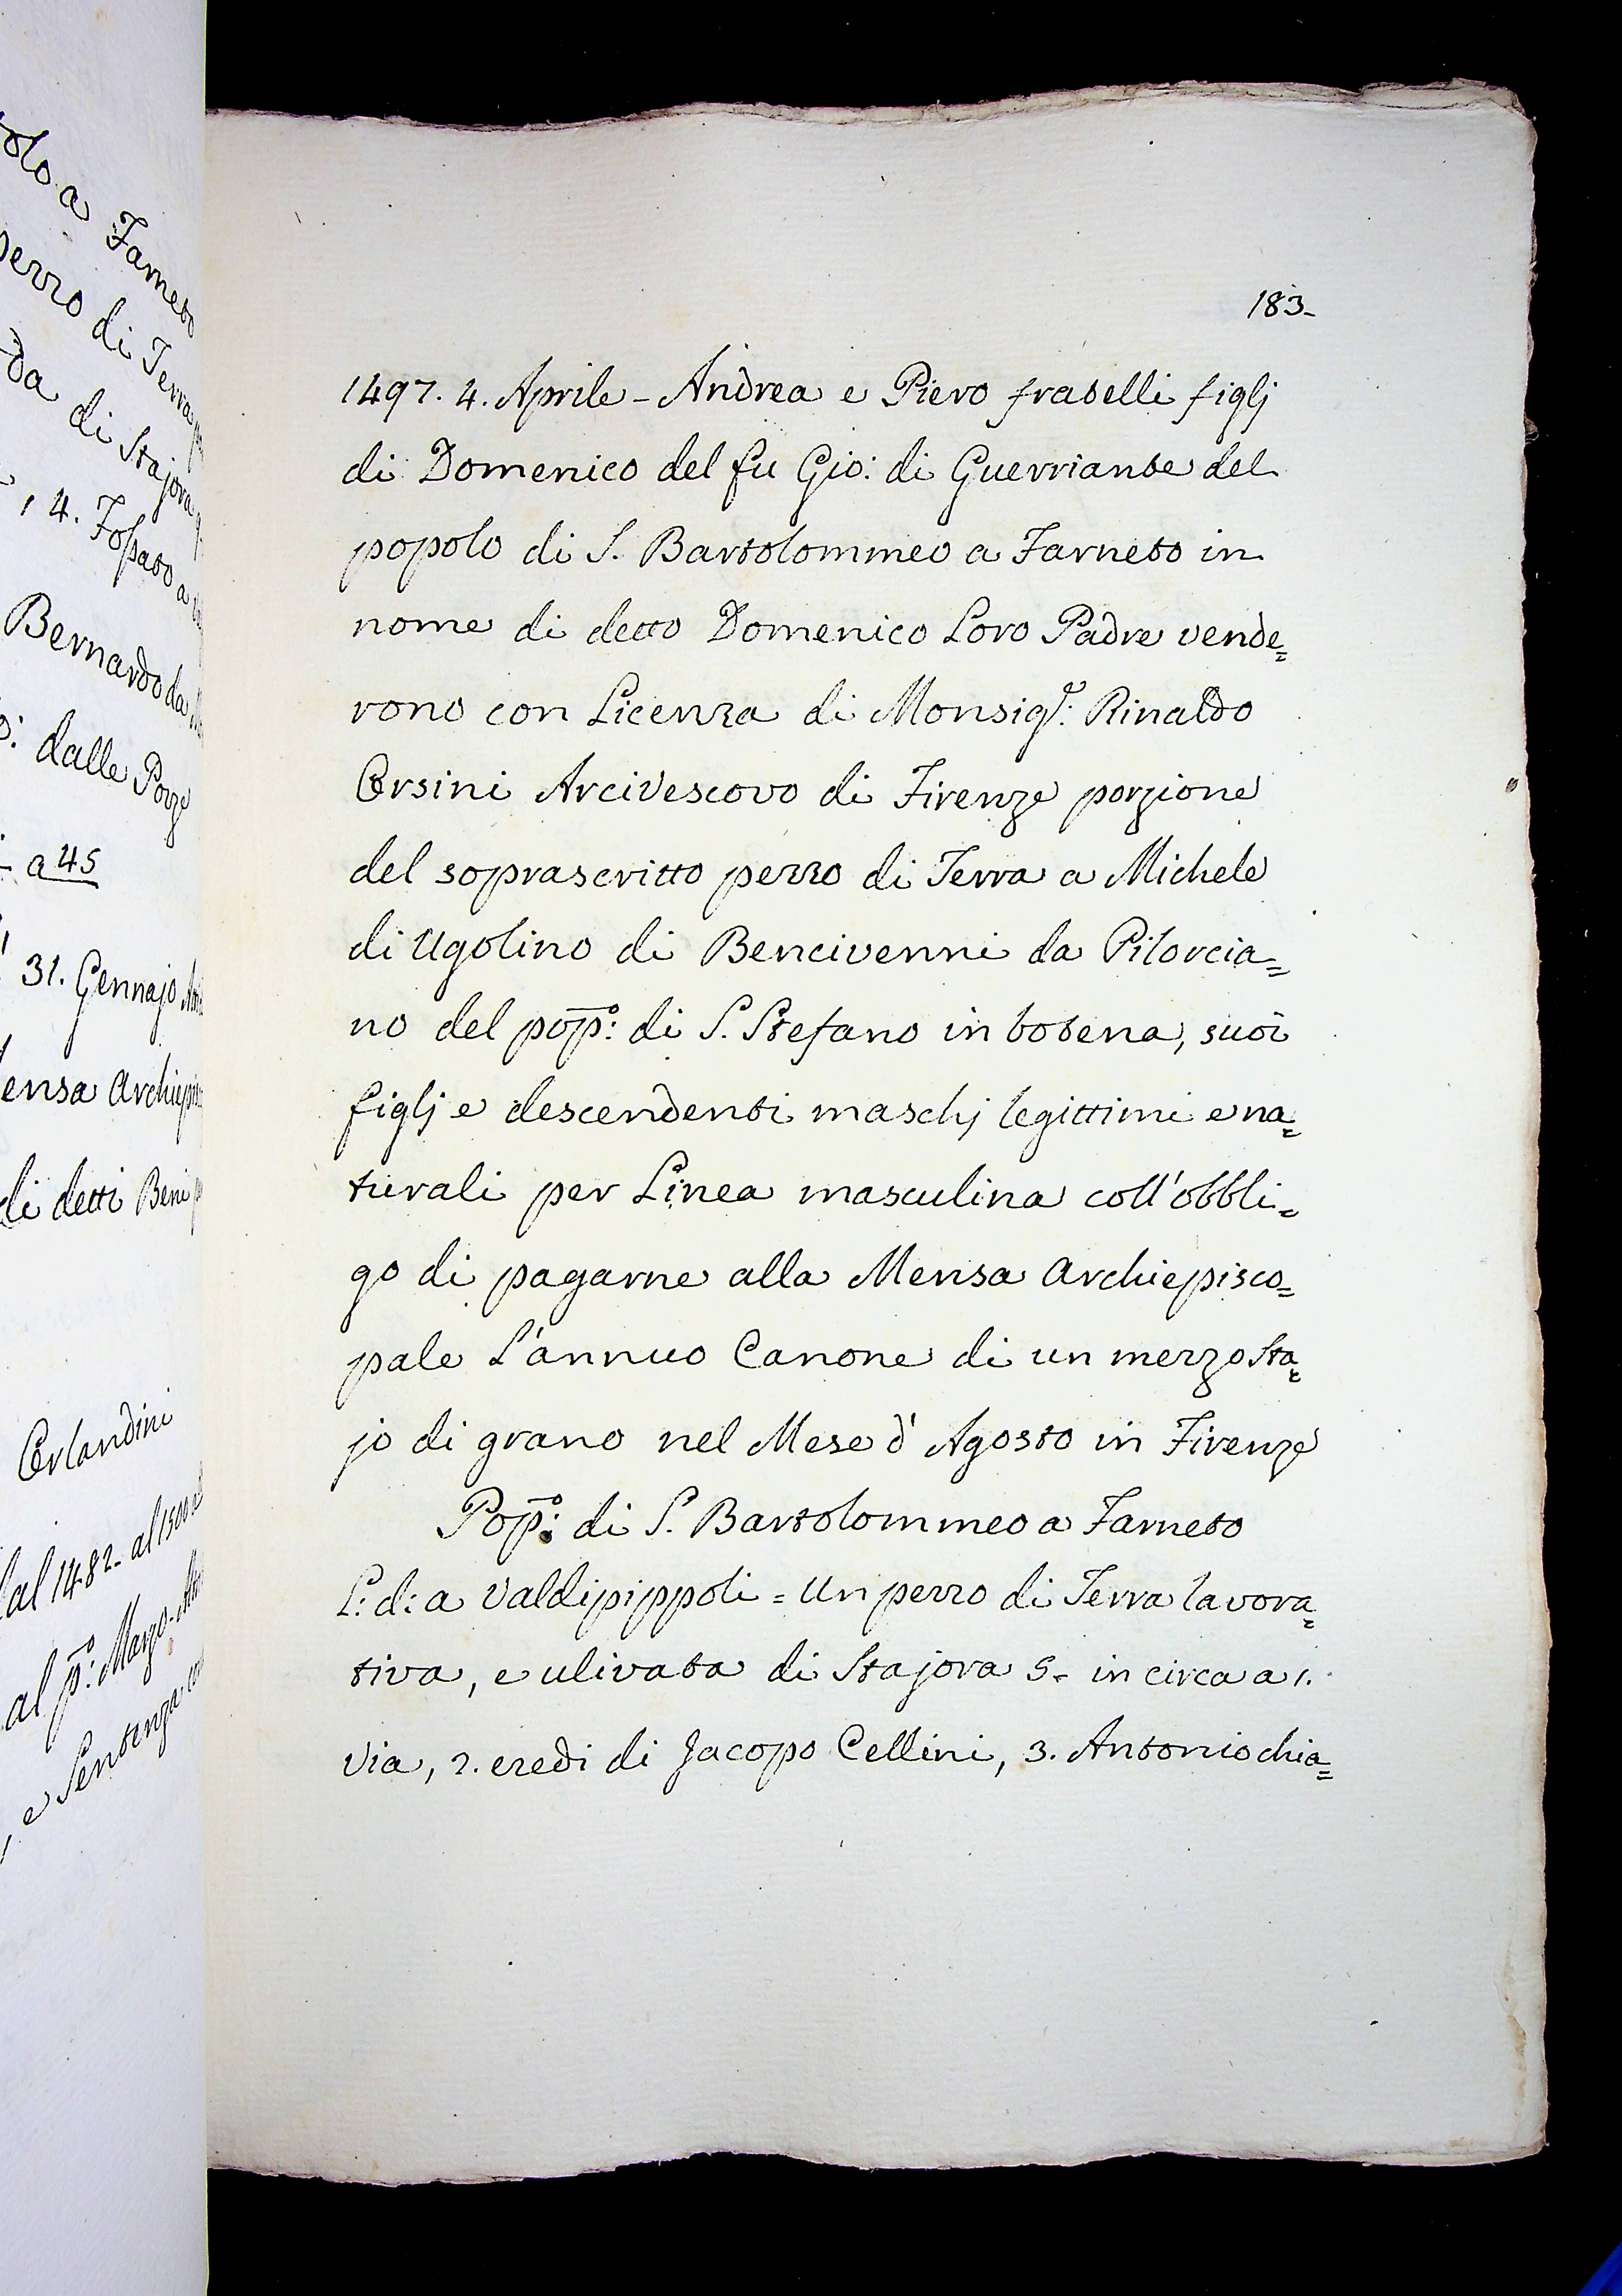 olo a Farneto
pezzo di Terra
da di Stajora
, 4. Fossato a
Bernardo da
dalle Pozze
a 45
31. Gennajo
ensa Archiepis
di detti Beni
Orlandini
al 1482. al 1500
al p.o: Marzo.
e Sentenza
183-
1497. 4. Aprile - Andrea e Piero fratelli figlj
di Domenico del fu Gio: di Guerriante del
popolo di S. Bartolommeo a Farneto in
nome di detto Domenico Loro Padre vende=
rono con Licenza di Monsig.r: Rinaldo
Orsini Arcivescovo di Firenze porzione
del soprascritto pezzo di Terra a Michele
di Ugolino di Bencivenni da Pilorcia=
no del pop.o: di S. Stefano in botena, suoi
figlj e descendenti maschj legittimi e na=
turali per Linea masculina coll'obbli=
go di pagarne alla Mensa Archiepisco=
pale L'annuo Canone di un mezzo Sta=
jo di grano nel Mese d'Agosto in Firenze
Pop.o: di S. Bartolommeo a Farneto
L: d: a Valdipippoli = Un pezzo di Terra lavora=
tiva, e ulivata di Stajora 5= in circa a 1.
Via, 2. eredi di Jacopo Cellini, 3. Antonio chia=